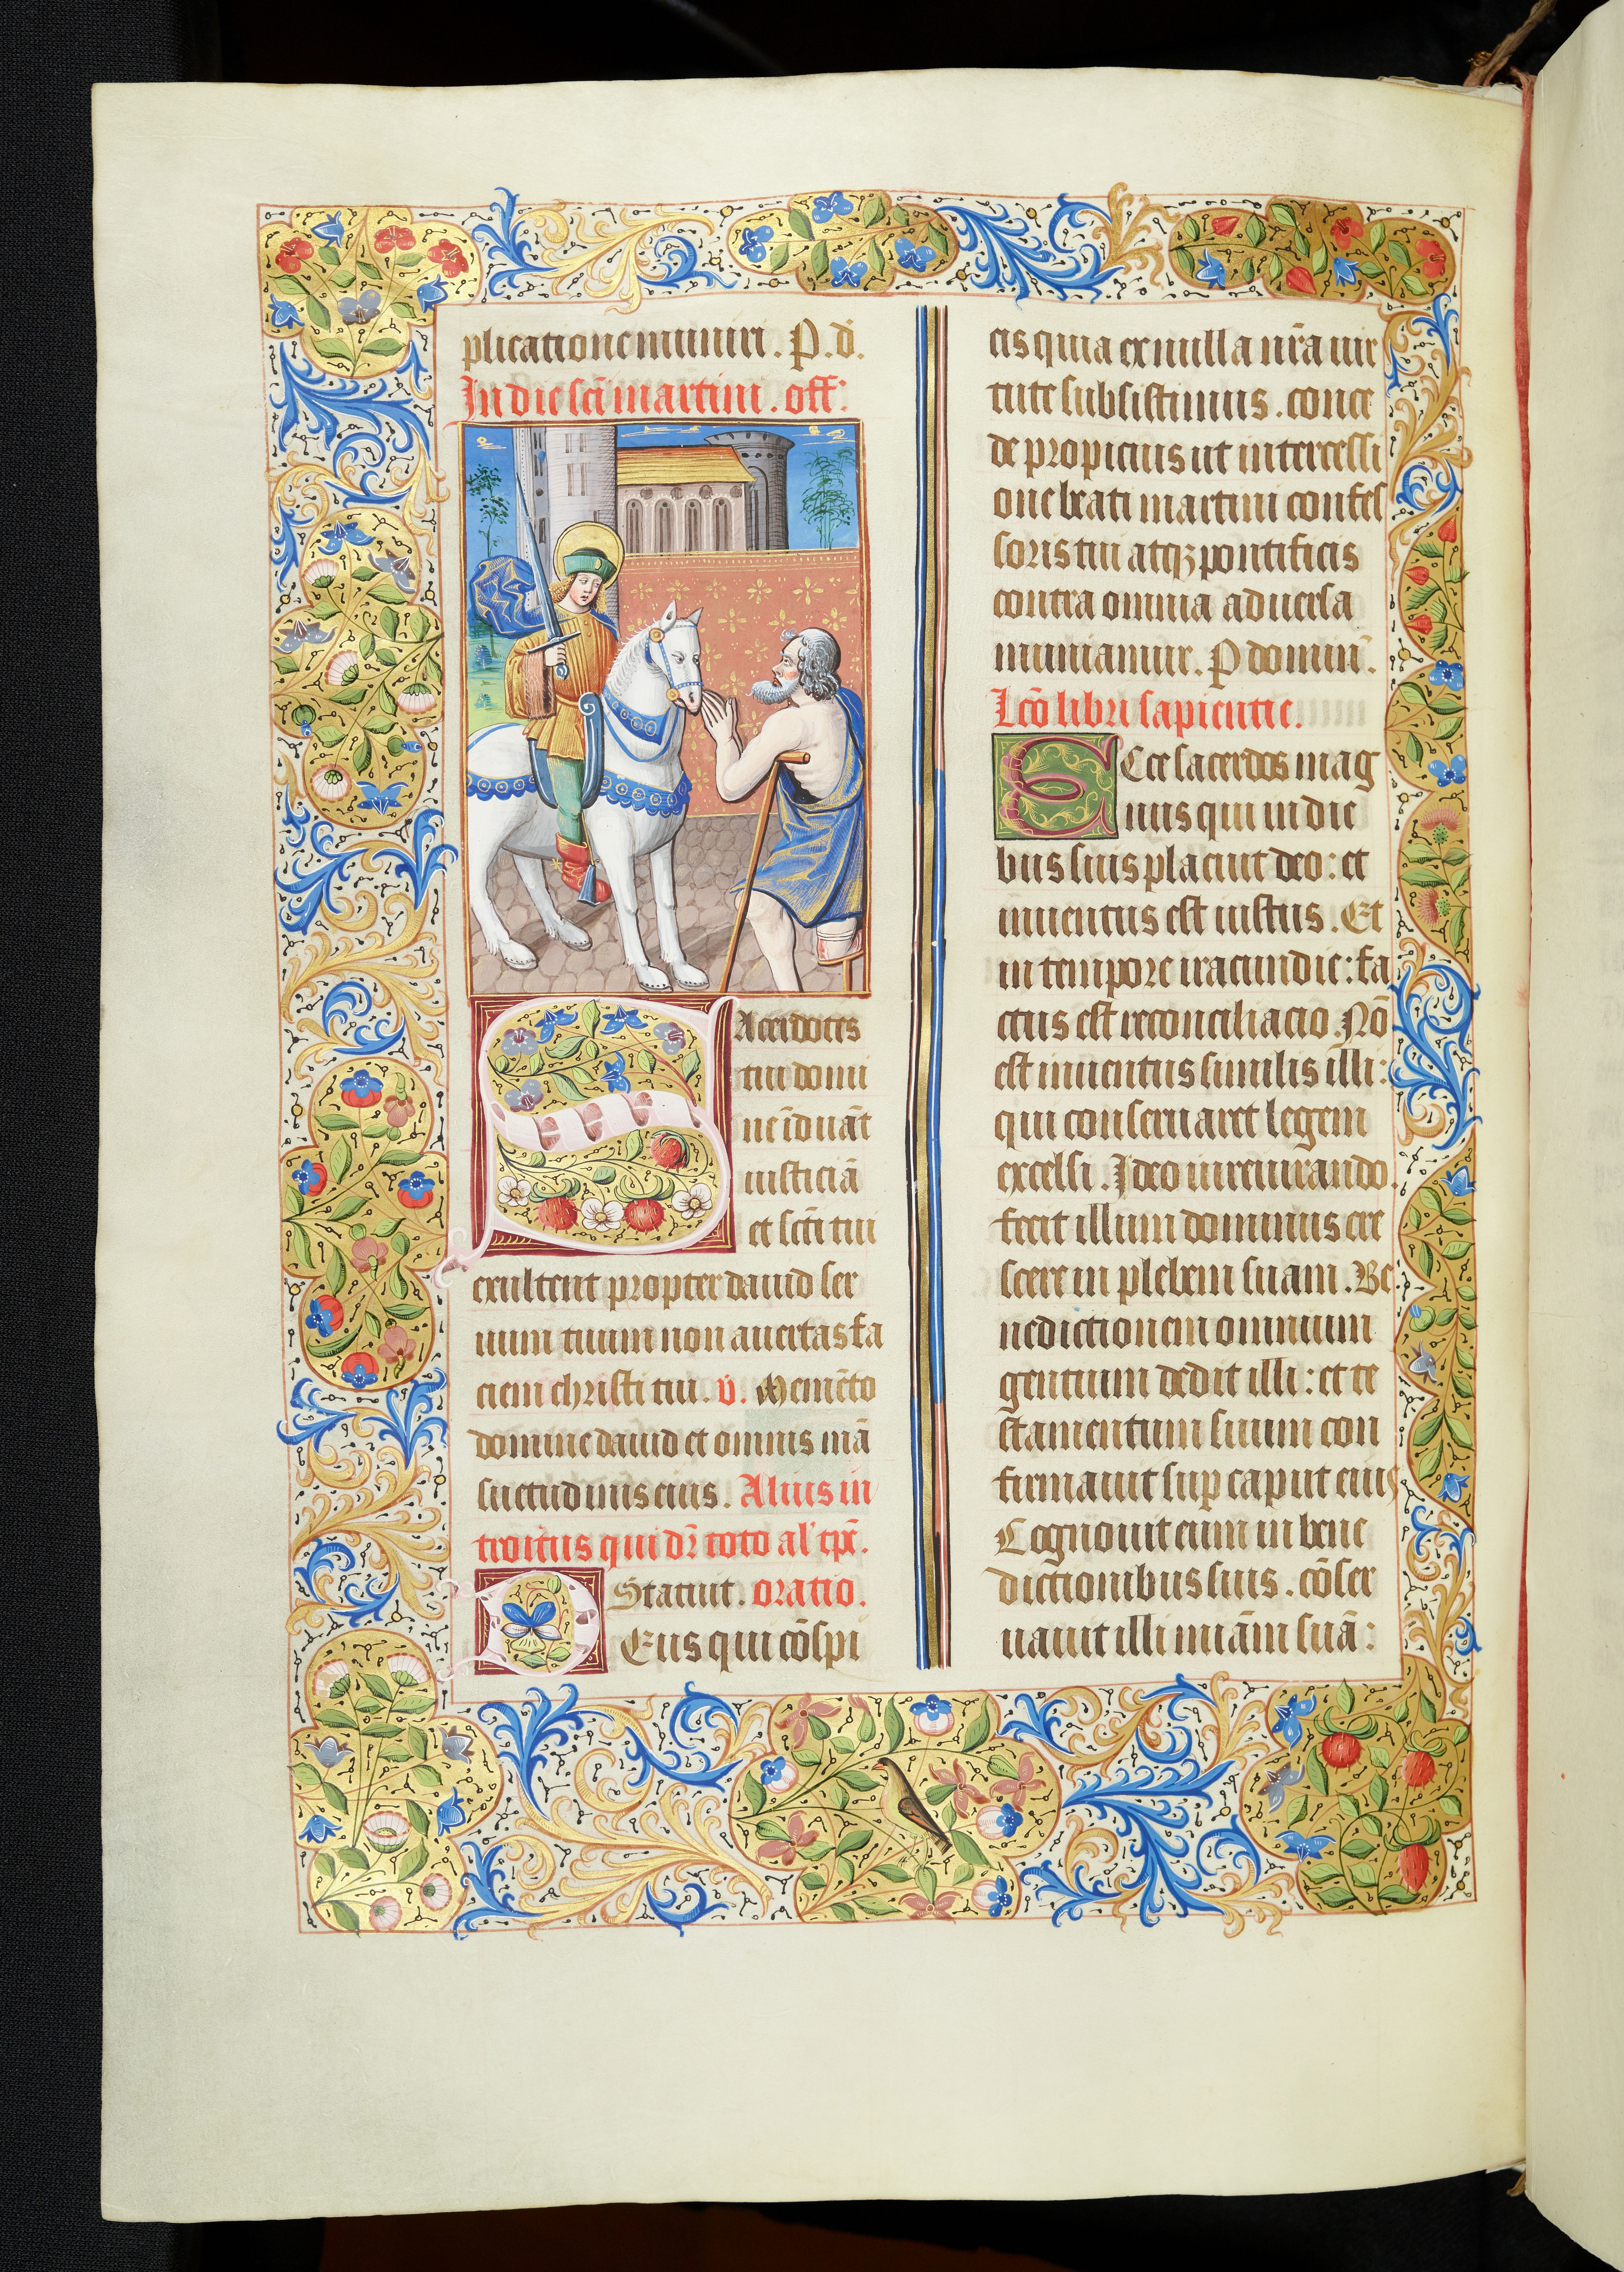 plicatione muniri. P. d̄.
In die scī martini. off:
SAcerdotes
tui domi
ne īduāt
iusticiā
et scti tui
exultent propter dauid ser
uum tuum non auertas fa
ciem christi tui. v̄. Memēto
domine dauid et omnis mā
suetudinis eius. Alius in
troitus qui dr̄ toto al' tp̄r.
Statuit. oratio.
DEus qui cōspi
cis quia ex nulla nr̄a uir
tute subsistimus. conce
de propicius ut intercessi
one beati martini confes
soris tui atqꝫ pontificis
contra omnia aduersa
muniamur. P domin̄.
Lcō libri sapientie.
ECce sacerdos mag
nus qui in die
bus suis placuit deo: et
inuentus est iustus. Et
in tempore iracundie: fa
ctus est reconciliacio. Nō
est inuentus similis illi:
qui conseruaret legem
excelsi. Ideo iureiurando
fecit illum dominus cre
scere in plebem suam. Be
nedictionem omnium
gentium dedit illi: et te
stamentum suum con
firmauit sup caput eius
Cognouit eum in bene
dictionibus suis. cōser
uauit illi miām suā: